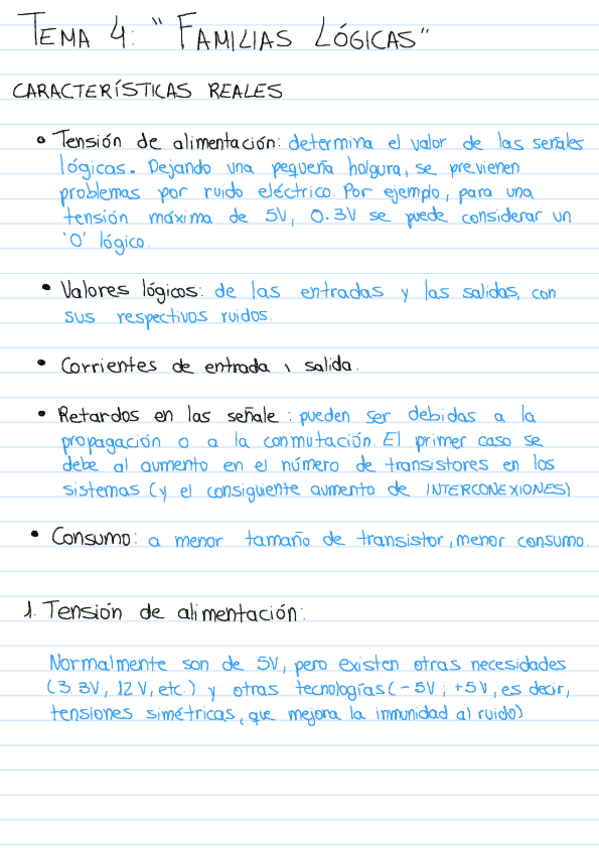 TEMA 4: "FAMILIAS LÓGICAS"
CARACTERÍSTICAS REALES
• Tensión de alimentación: determina el valor de las señales
lógicas. Dejando una pequeña holgura, se previenen
problemas por ruido eléctrico. Por ejemplo, para una
tensión máxima de 5V, 0.3V se puede considerar un
'0' lógico.
• Valores lógicos: de las entradas y las salidas, con
sus respectivos ruidos.
• Corrientes de entrada y salida.
• Retardos en las señale: pueden ser debidas a la
propagación o a la conmutación. El primer caso se
debe al aumento en el número de transistores en los
sistemas (y el consiguiente aumento de INTERCONEXIONES)
• Consumo: a menor tamaño de transistor, menor consumo.
1. Tensión de alimentación:
Normalmente son de 5V, pero existen otras necesidades
(3.3V, 12V, etc.) y otras tecnologías (-5V; +5V, es decir,
tensiones simétricas, que mejora la inmunidad al ruido)